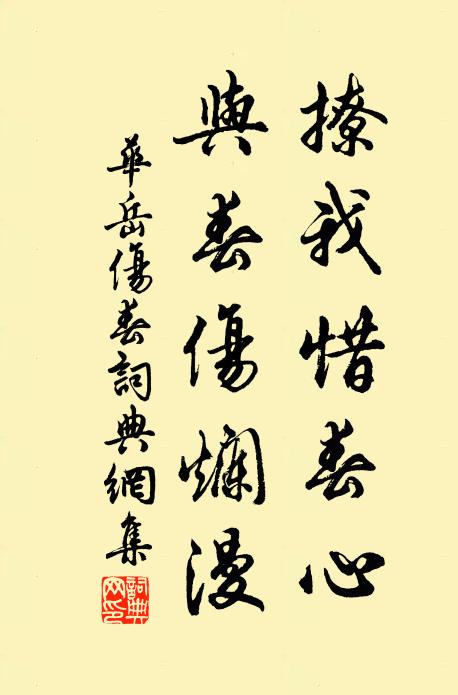 撩我惜春心
與春傷爛漫
華岳傷春詞典網集
詞典網印